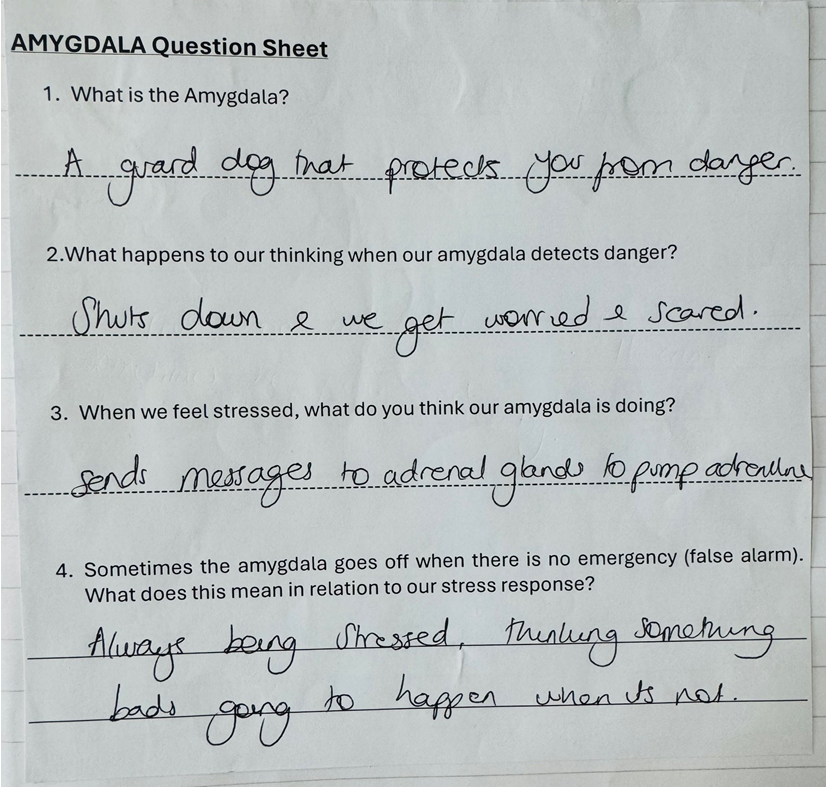 AMYGDALA Question Sheet
1. What is the Amygdala?
A guard dog that protects you from danger.
2.What happens to our thinking when our amygdala detects danger?
Shuts down & we get worried & scared.
3. When we feel stressed, what do you think our amygdala is doing?
sends messages to adrenal glands to pump adrenaline
4. Sometimes the amygdala goes off when there is no emergency (false alarm).
What does this mean in relation to our stress response?
Always being stressed, thinking something
bads going to happen when its not.